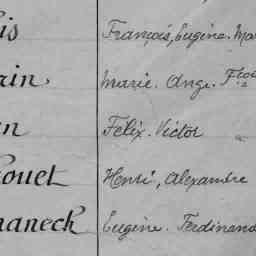 is François, Eugène. Mar
rin. Marie. Ange. Fçois
n Félix. Victor
ouet Henri, Alexandre
naneck Eugène. Ferdinand